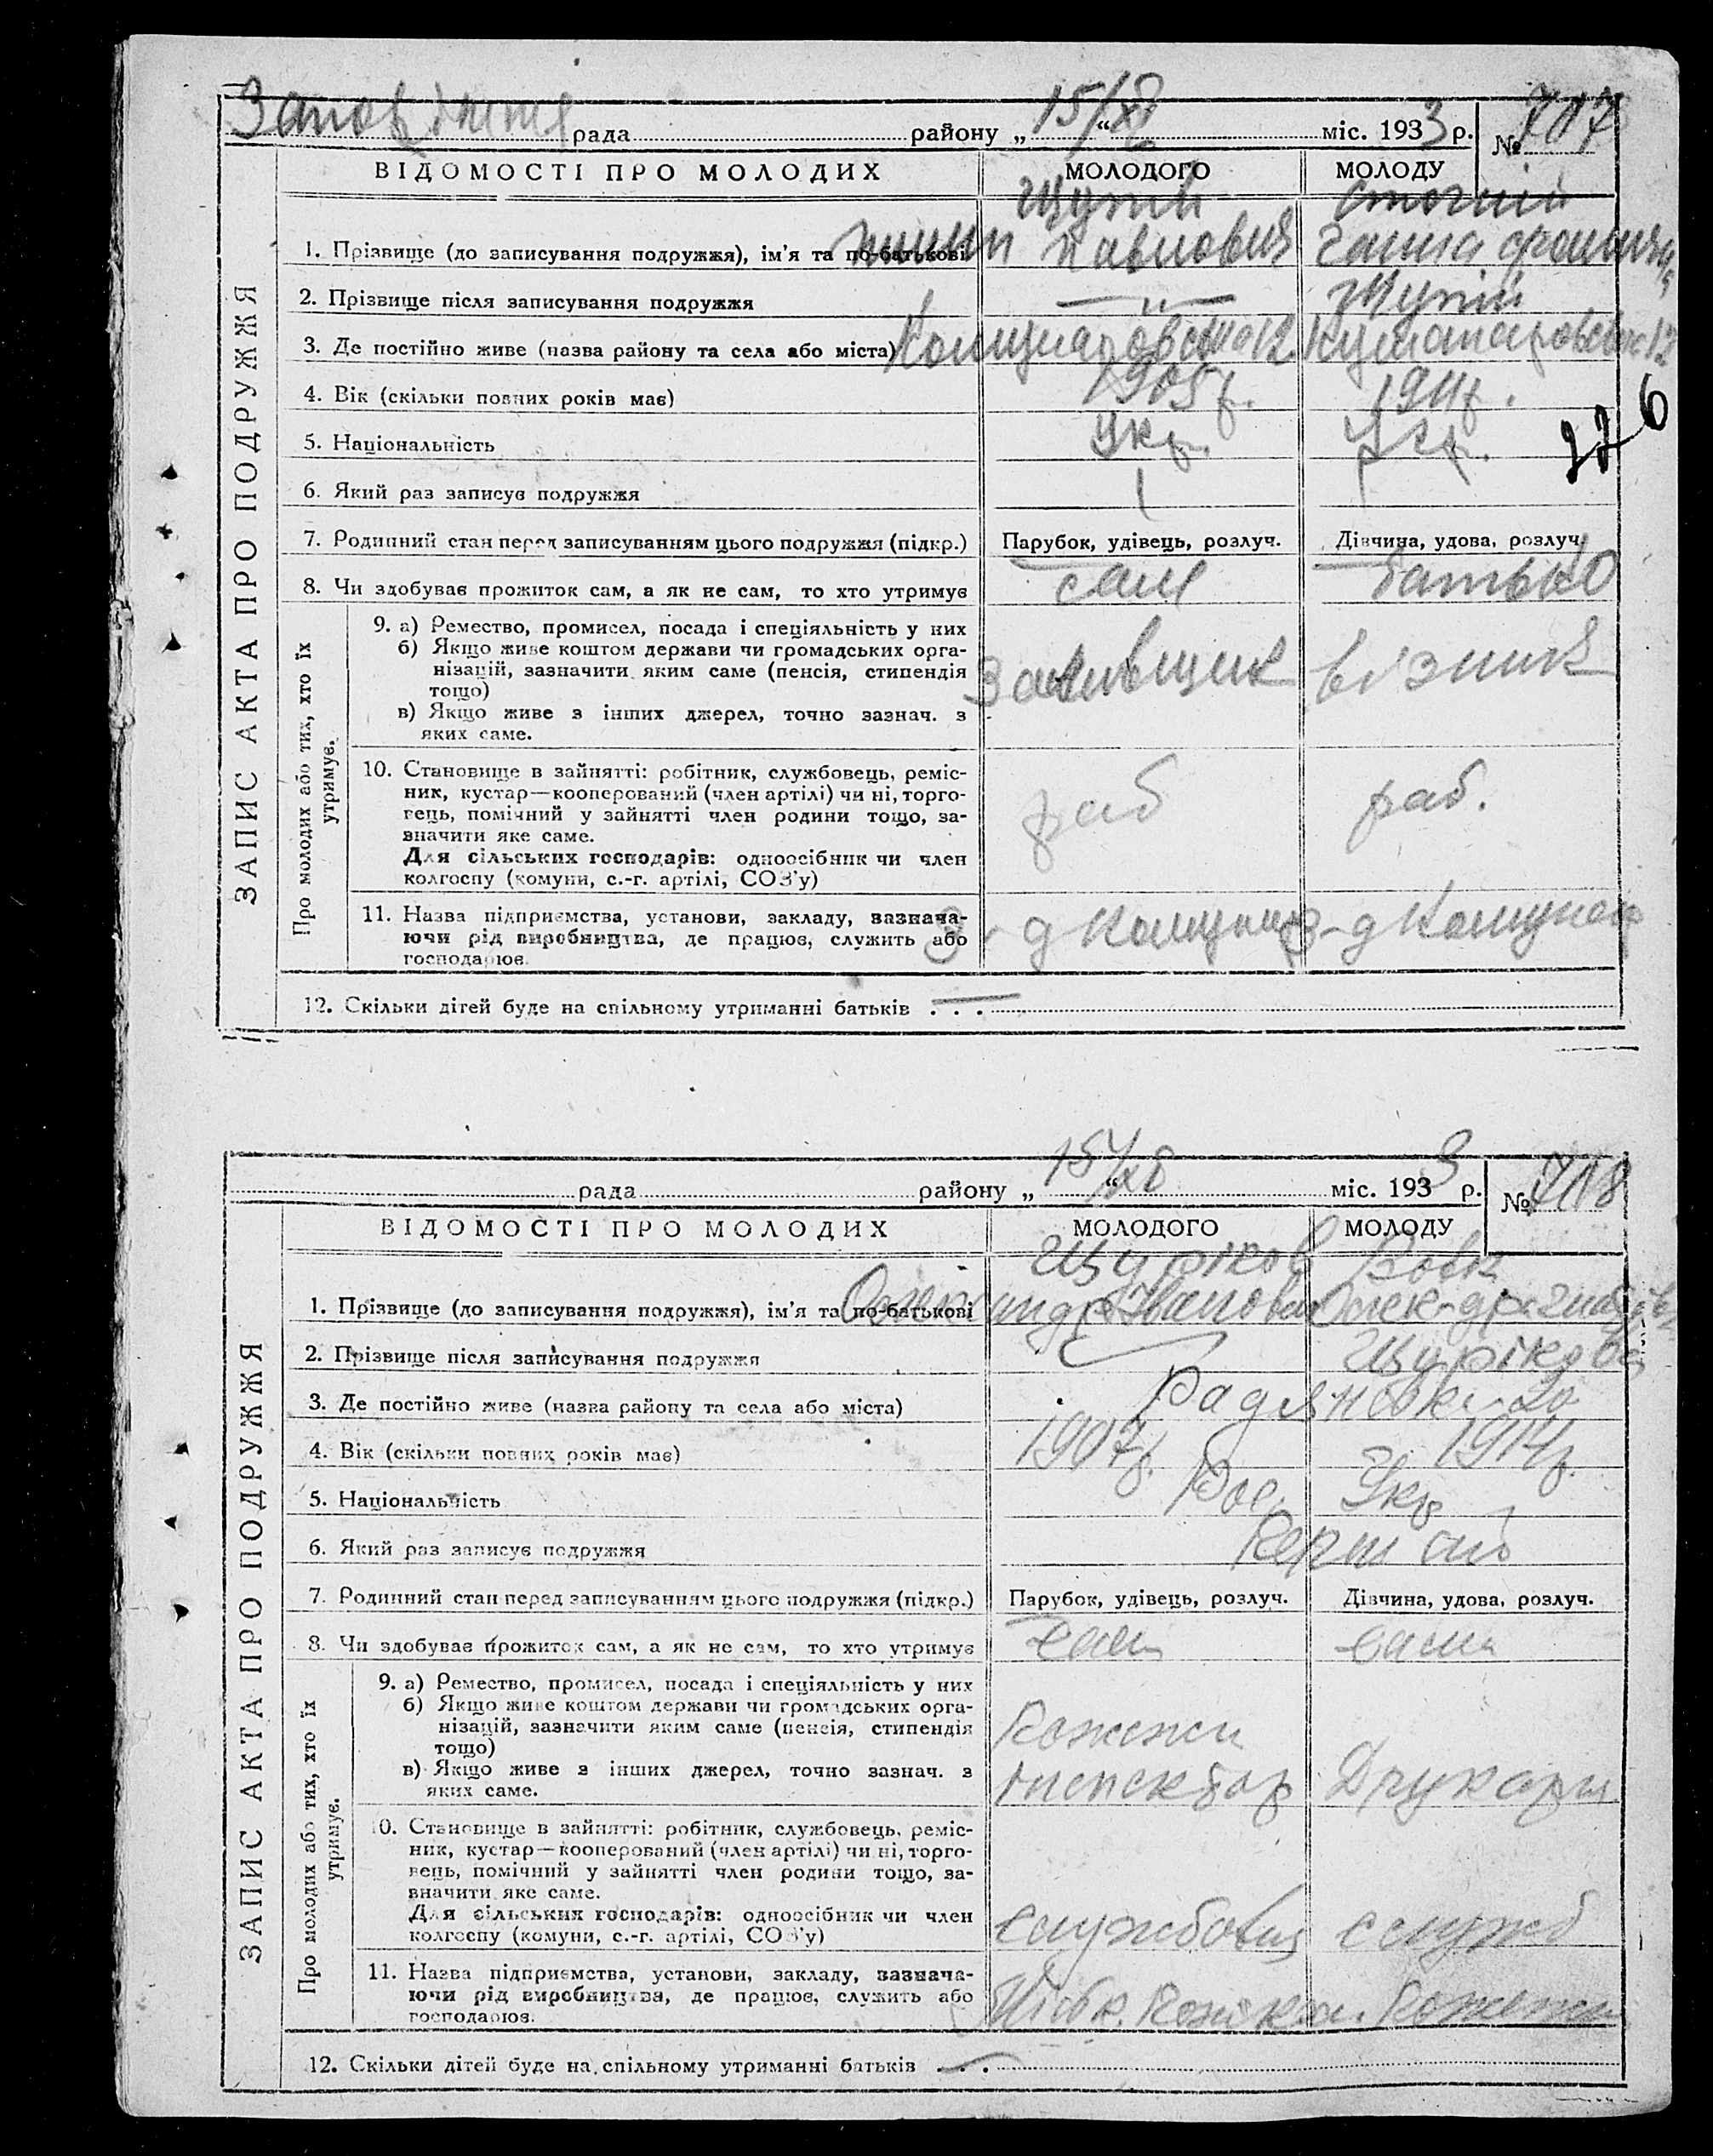 рада районусь „15/XI“ міс. 1933 р. № 707
ВІДОМОСТІ ПРО МОЛОДИХ МОЛОДОГО МОЛОДУ
1. Прізвище (до записування подружжя), ім'я та по-батькові Павлович Ганна
2. Прізвище після записування подружжя — „ —
3. Де постійно живе (назва району та села або міста)
4. Вік (скільки повних років має) 1905 р. 1911 р.
5. Національність Укр. Укр.
276
6. Який раз записує подружжя 1
7. Родинний стан перед записуванням цього подружжя (підкр.) Парубок, удівець, розлуч. Дівчина, удова, розлуч.
8. Чи здобуває прожиток сам, а як не сам, то хто утримує сам батько
9. а) Ремество, промисел, посада і спеціяльність у них
б) Якщо живе коштом держави чи громадських орга-
нізацій, зазначити яким саме (пенсія, стипендія
тощо)
в) Якщо живе з інших джерел, точно зазнач. з
яких саме.
візник
10. Становище в зайнятті: робітник, службовець, реміс-
ник, кустар—кооперований (член артілі) чи ні, торго-
вець, помічний у зайнятті член родини тощо, за-
значити яке саме.
Для сільських господарів: одноосібник чи член
колгоспу (комуни, с.-г. артілі, СОЗ'у)
раб раб.
11. Назва підприємства, установи, закладу, зазнача-
ючи рід виробництва, де працює, служить або
господарює.
З-д Комунар З-д Комунар
12. Скільки дітей буде на спільному утриманні батьків . . . —
ЗАПИС АКТА ПРО ПОДРУЖЖЯ
Про молодих або тих, хто їх
утримує.
рада району „15/XI“ міс. 1933 р. № 708
ВІДОМОСТІ ПРО МОЛОДИХ МОЛОДОГО МОЛОДУ
Щуріков Вовк
1. Прізвище (до записування подружжя), ім'я та по-батькові Олександр Іванович Олек-дра
2. Прізвище після записування подружжя Щурікова
3. Де постійно живе (назва району та села або міста)
4. Вік (скільки повних років має) 1907 р. 1914 р.
5. Національність Рос. Укр
6. Який раз записує подружжя
7. Родинний стан перед записуванням цього подружжя (підкр.) Парубок, удівець, розлуч. Дівчина, удова, розлуч.
8. Чи здобуває прожиток сам, а як не сам, то хто утримує сам сама
9. а) Ремество, промисел, посада і спеціяльність у них
б) Якщо живе коштом держави чи громадських орга-
нізацій, зазначити яким саме (пенсія, стипендія
тощо)
в) Якщо живе з інших джерел, точно зазнач. з
яких саме.
інспектор Друкарка
10. Становище в зайнятті: робітник, службовець, реміс-
ник, кустар—кооперований (член артілі) чи ні, торго-
вець, помічний у зайнятті член родини тощо, за-
значити яке саме.
Для сільських господарів: одноосібник чи член
колгоспу (комуни, с.-г. артілі, СОЗ'у)
службовец служб
11. Назва підприємства, установи, закладу, зазнача-
ючи рід виробництва, де працює, служить або
господарює.
12. Скільки дітей буде на спільному утриманні батьків . . . —
ЗАПИС АКТА ПРО ПОДРУЖЖЯ
Про молодих або тих, хто їх
утримує.